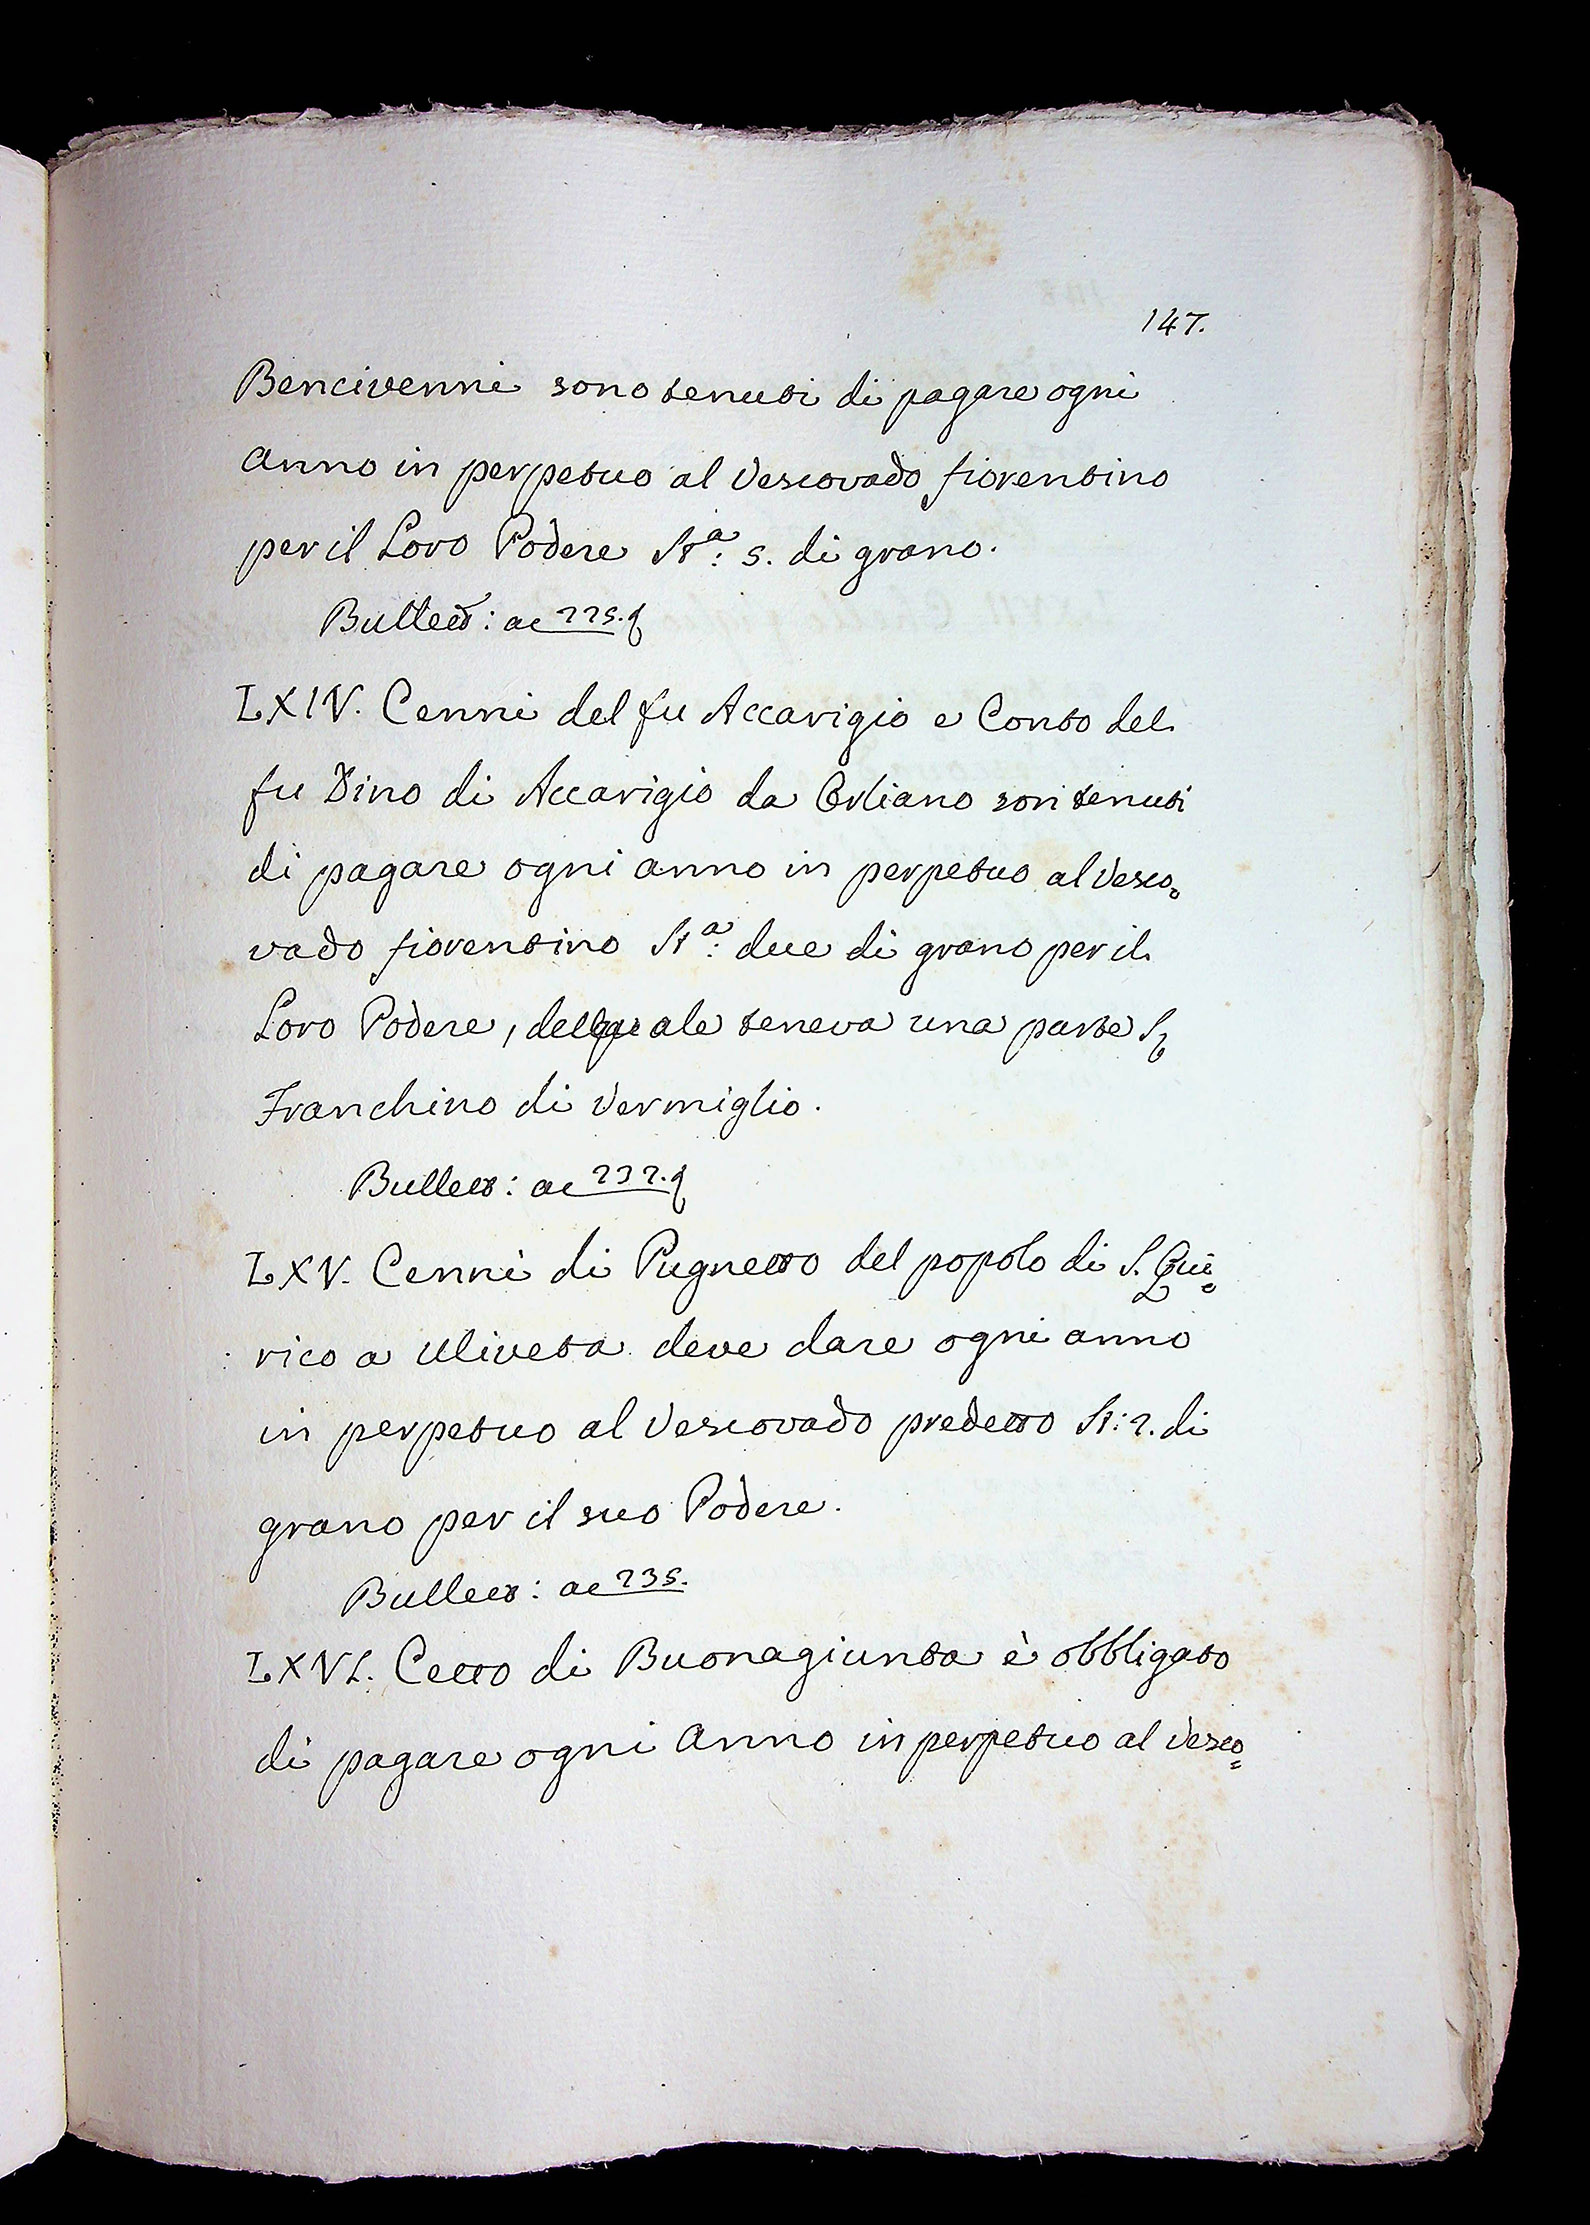 147.
Bencivenni sono tenuti di pagare ogni
anno in perpetuo al Vescovado fiorentino
per il Loro Podere St.ª: 5. di grano.
Bullett: ac 225.
LXIV. Cenni del fu Accarigio e Conto del
fu Dino di Accarigio da Orliano son tenuti
di pagare ogni anno in perpetuo al Vesco=
vado fiorentino St.ª: due di grano per il
Loro Podere, del quale teneva una parte Sr
Franchino di Vermiglio.
Bullett: ac 232.
LXV. Cenni di Pugnetto del popolo di S. Qui=
rico a Uliveta deve dare ogni anno
in perpetuo al Vescovado predetto St: 2. di
grano per il suo Podere.
Bullett: ac 235.
LXVI. Cetto di Buonagiunta è obbligato
di pagare ogni Anno in perpetuo al Vesco=